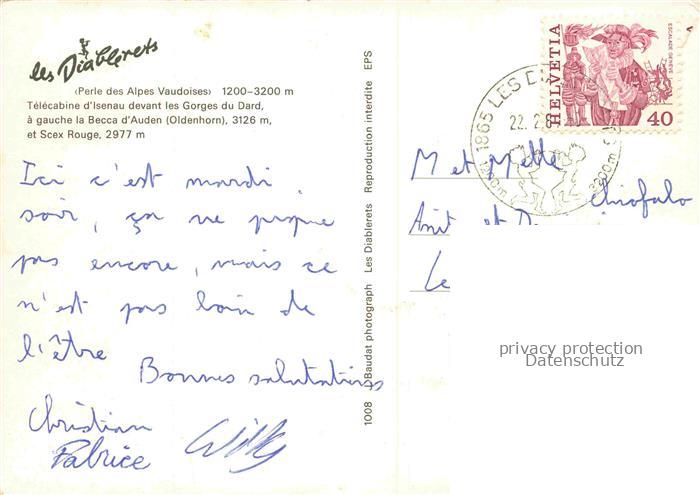 les Diablerets
(Perle des Alpes Vaudoises) 1200–3200 m
Télécabine d'Isenau devant les Gorges du Dard,
à gauche la Becca d'Auden (Oldenhorn), 3126 m,
et Scex Rouge, 2977 m
Ici c'est mardi
soir, ça ne
pas encore, mais ce
n'est pas loin de
l'être
Bonnes salutations
Christian
Fabrice Willy
1008 Baudat photograph Les Diablerets Reproduction interdite EPS
HELVETIA
ESCALADE GENÈVE
40
1865 LES
22. 2
1200m
3200m
M et Mlle
Chiofalo
et
Le
privacy protection
Datenschutz